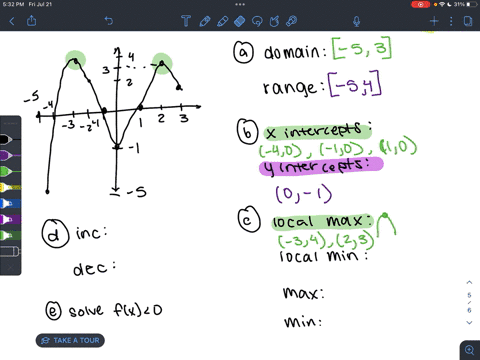 5:32 PM Fri Jul 21
31%
4
3
2
-5
-4
-3 -2 -1
1 2 3
-1
-5
a domain: [-5, 3]
range: [-5,4]
b x intercepts:
(-4,0), (-1,0), (1,0)
y intercepts:
(0, -1)
c local max:
(-3,4), (2,3)
local min:
max:
min:
d inc:
dec:
e solve f(x)<0
TAKE A TOUR
5
6